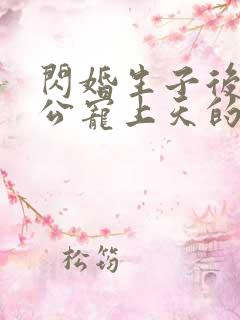 閃婚生子後
公寵上天的
松筠